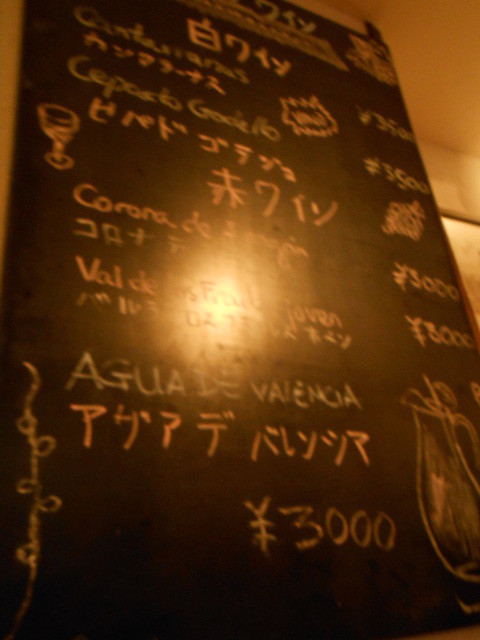 ワイン
白ワイン
Cantarranas
カンタラーナス ¥3500
Godello
ビバド ゴデジョ ¥3500
赤ワイン
Corona de
コロナ デ ¥3000
Val de los Frailes joven
バルデロスフライレス ホベン ¥3000
AGUA DE VALENCIA
アグア デ バレンシア
¥3000